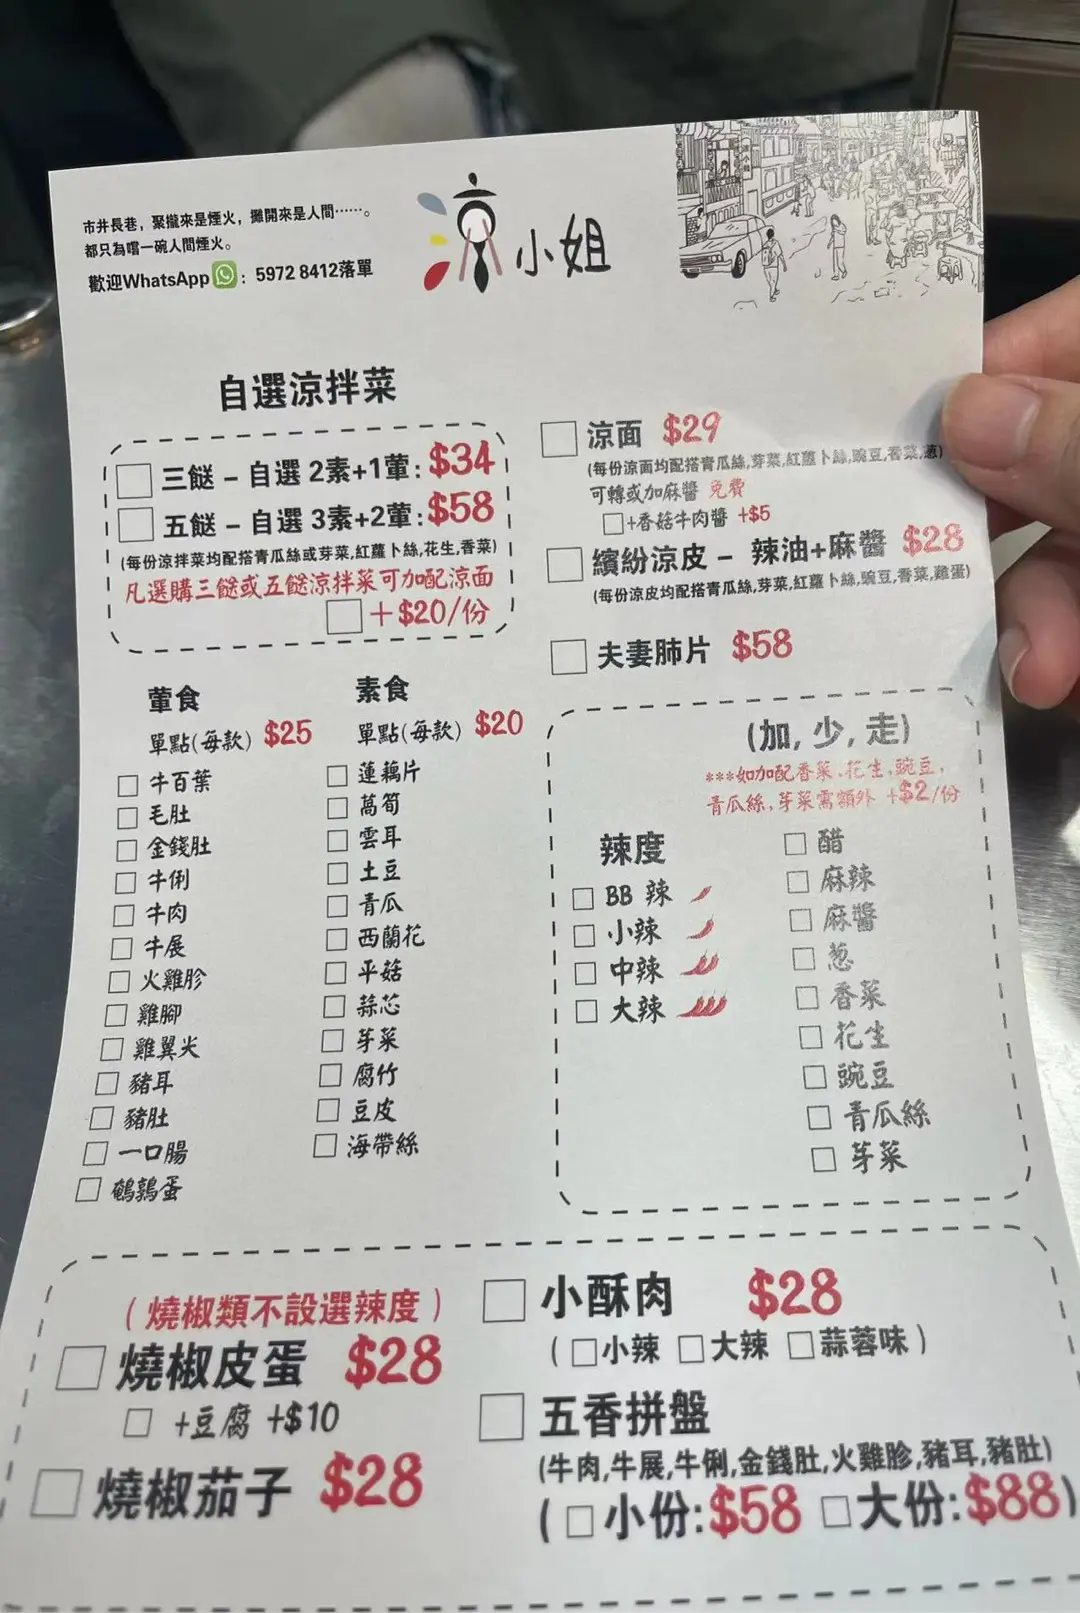 市井長巷，聚攏來是煙火，攤開來是人間……。
都只為嚐一碗人間煙火。
歡迎WhatsApp：5972 8412落單
涼小姐
自選涼拌菜
三餸 – 自選 2素+1葷: $34
五餸 – 自選 3素+2葷: $58
(每份涼拌菜均配搭青瓜絲或芽菜,紅蘿卜絲,花生,香菜)
凡選購三餸或五餸涼拌菜可加配涼面
+$20/份
涼面 $29
(每份涼面均配搭青瓜絲,芽菜,紅蘿卜絲,豌豆,香菜,葱)
可轉或加麻醬 免費
+香菇牛肉醬 +$5
繽紛涼皮 – 辣油+麻醬 $28
(每份涼皮均配搭青瓜絲,芽菜,紅蘿卜絲,豌豆,香菜,雞蛋)
夫妻肺片 $58
葷食
單點(每款) $25
牛百葉
毛肚
金錢肚
牛脷
牛肉
牛展
火雞胗
雞腳
雞翼尖
豬耳
豬肚
一口腸
鵪鶉蛋
素食
單點(每款) $20
蓮藕片
萵筍
雲耳
土豆
青瓜
西蘭花
平菇
蒜芯
芽菜
腐竹
豆皮
海帶絲
(加, 少, 走)
***如加配香菜,花生,豌豆,
青瓜絲,芽菜需額外 +$2/份
辣度
BB 辣
小辣
中辣
大辣
醋
麻辣
麻醬
葱
香菜
花生
豌豆
青瓜絲
芽菜
(燒椒類不設選辣度)
燒椒皮蛋 $28
+豆腐 +$10
燒椒茄子 $28
小酥肉 $28
(小辣 大辣 蒜蓉味)
五香拼盤
(牛肉,牛展,牛脷,金錢肚,火雞胗,豬耳,豬肚)
(小份:$58 大份:$88)